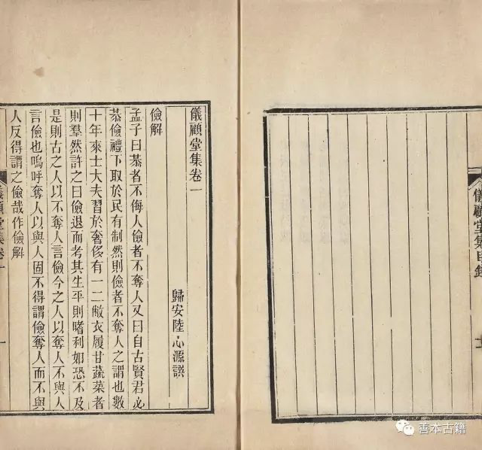 儀顧堂集目錄
儀顧堂集卷一
歸安陸心源譔
儉解
孟子曰恭者不侮人儉者不奪人又曰自古賢君必
恭儉禮下取於民有制然則儉者不奪人之謂也數
十年來士大夫習於奢侈有一二敝衣履甘蔬菜者
則羣然許之曰儉退而考其生平則嗜利如恐不及
是則古之人以不奪人言儉今之人以奪人不與人
言儉也嗚呼奪人以與人固不得謂儉奪人而不與
人反得謂之儉哉作儉解
儀顧堂集卷一
一
善本古籍